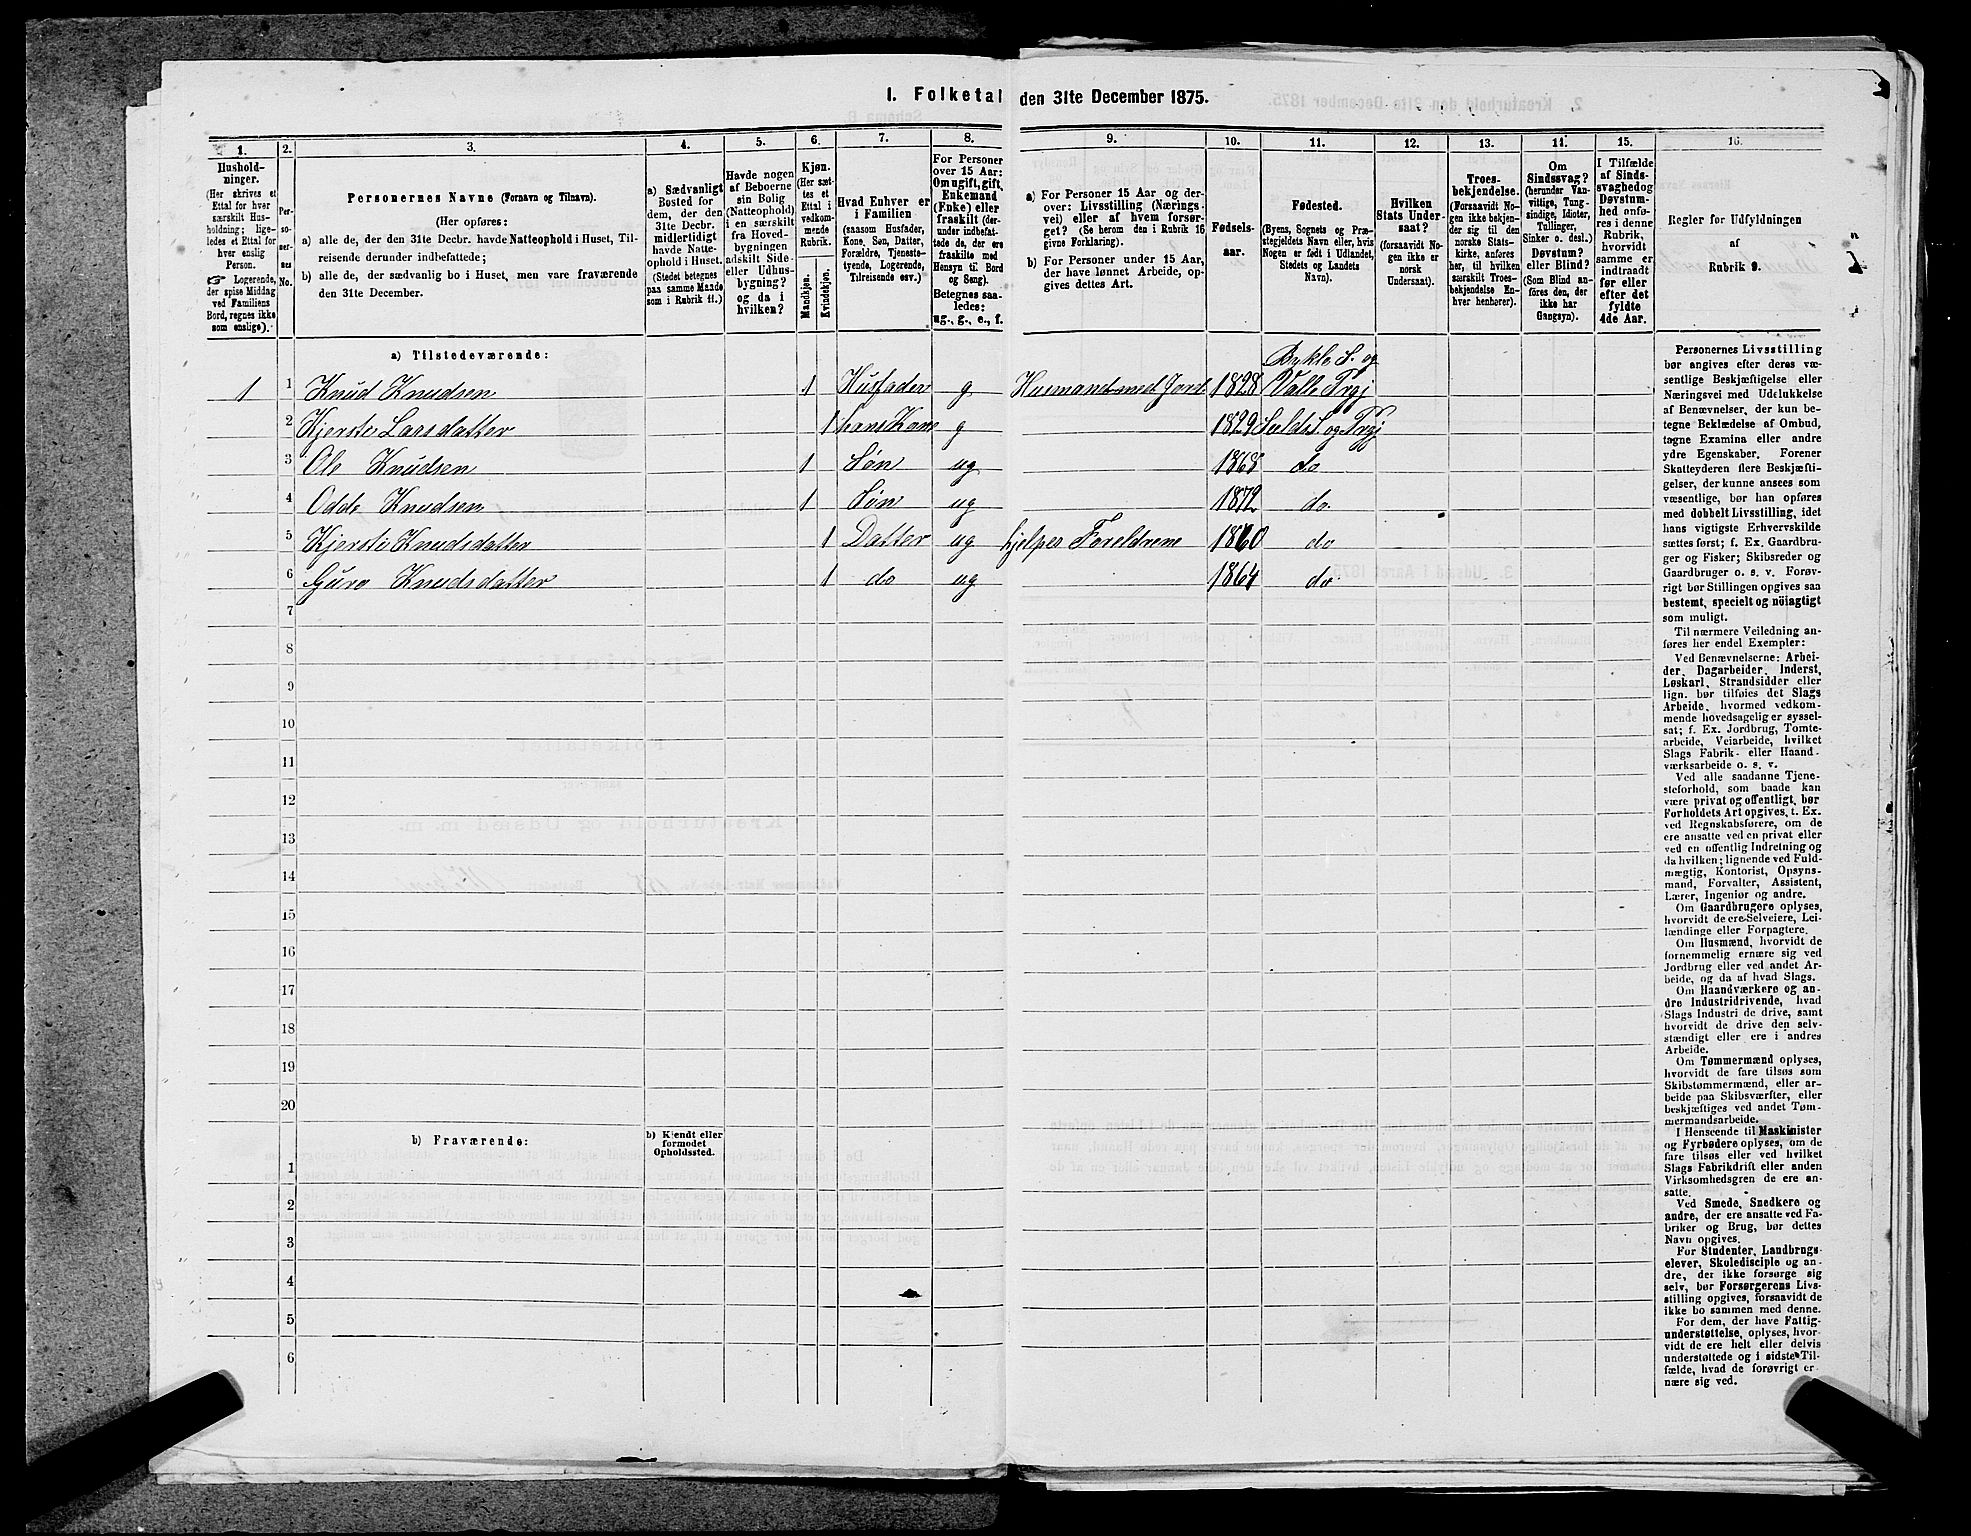 I. Folketal den 31te December 1875.
1. 2. 3. 4. 5. 6. 7. 8. 9. 10. 11. 12. 13. 14. 15. 16.
Hushold-
ninger.
(Her skrives et
Ettal for hver
særskilt Hus-
holdning; lige-
ledes et Ettal for
hver enslig
Person.
☞ Logerende,
der spise Middag
ved Familiens
Bord, regnes ikke
som enslige).
Per-
so-
ner-
nes
No.
Personernes Navne (Fornavn og Tilnavn).
(Her opføres:
a) alle de, der den 31te Decbr. havde Natteophold i Huset, Til-
reisende derunder indbefattede;
b) alle de, der sædvanlig bo i Huset, men vare fraværende
den 31te December.
a) Sædvanligt
Bosted for
dem, der den
31te Decbr.
midlertidigt
havde Natte-
ophold i Huset.
(Stedet betegnes
paa samme Maade
som i Rubrik 11.)
Havde nogen
af Beboerne
sin Bolig
(Natteophold)
i en særskilt
fra Hoved-
bygningen
adskilt Side-
eller Udhus-
bygning?
og da i
hvilken?
Kjøn.
(Her sæt-
tes et
Ettal i
vedkom-
mende
Rubrik.
Mandkjøn.
Kvindekjøn.
Hvad Enhver er
i Familien
(saasom Husfader,
Kone, Søn, Datter,
Forældre, Tjeneste-
tyende, Logerende,
Tilreisende osv.)
For Personer
over 15 Aar:
Om ugift, gift,
Enkemand
(Enke) eller
fraskilt (der-
under indbefat-
tede de, der ere
fraskilte med
Hensyn til Bord
og Seng).
Betegnes saa-
ledes:
ug., g., e., f.
a) For Personer 15 Aar og der-
over: Livsstilling (Nærings-
vei) eller af hvem forsør-
get? (Se herom den i Rubrik 16
givne Forklaring).
b) For Personer under 15 Aar,
der have lønnet Arbeide, op-
gives dettes Art.
Fødsels-
aar.
Fødested.
(Byens, Sognets og Præ-
stegjeldets Navn eller, hvis
Nogen er født i Udlandet,
Stedets og Landets
Navn).
Hvilken
Stats Under-
saat?
(forsaavidt No-
gen ikke er
norsk
Undersaat).
Troes-
bekjendelse.
(Forsaavidt No-
gen ikke bekjen-
der sig til den
norske Stats-
kirke, anføres
her, til hvilken
særskilt Troes-
bekjendelse En-
hver henhører).
Om
Sindssvag?
(herunder Van-
vittige, Tung-
sindige, Idioter,
Tullinger,
Sinker o. desl.)
Døvstum?
eller Blind?
(Som Blind an-
føres den, der
ikke har
Gangsyn).
I Tilfælde
af Sinds-
svaghed og
Døvstum-
hed onfø-
res i denne
Rubrik,
hvorvidt
samme er
indtraadt
før eller
efter det
fyldte
4de Aar.
Regler for Udfyldningen
af
Rubrik 9.
a) Tilstedeværende:
Bykle S. og
1 1 Knud Knudsen 1 Husfader g Husmand med Jord 1828 Valle Prgj
2 Kjersti Larsdatter 1 hans Kone g 1829 Suldal S. og Prgj
3 Ole Knudsen 1 Søn ug 1868 do
4 Odde Knudsen 1 Søn ug 1872 do.
5 Kjersti Knudsdatter 1 Datter ug hjelper Foreldrene 1860 do
6 Guro Knudsdatter 1 do ug 1864 do.
7
8
9
10
11
12
13
14
15
16
17
18
19
20
b) Fraværende:
b) Kjendt eller
formodet
Opholdssted.
1
2
3
4
5
6
Personernes Livsstilling
bør angives efter deres væ-
sentlige Beskjæftigelse eller
Næringsvei med Udelukkelse
af Benævnelser, der kun be-
tegne Beklædelse af Ombud,
tagne Examina eller andre
ydre Egenskaber. Forener
Skatteyderen flere Beskjæfti-
gelser, der kunne ansees som
væsentlige, bør han opføres
med dobbelt Livsstilling, idet
hans vigtigste Erhvervskilde
sættes først; f. Ex. Gaardbru-
ger og Fisker; Skibsreder og
Gaardbruger o. s. v. Forøv-
rigt bør Stillingen opgives saa
bestemt, specielt og nöiagtigt
som muligt.
Til nærmere Veiledning an-
føres her endel Exempler:
Ved Benævnelserne: Arbei-
der, Dagarbeider, Inderst,
Løskarl, Strandsidder eller
lign. bør tilføies det Slags
Arbeide, hvormed vedkom-
mende hovedsagelig er syssel-
sat; f. Ex. Jordbrug, Tomte-
arbeide, Veiarbeide, hvilket
Slags Fabrik- eller Haand-
værksarbeide o. s. v.
Ved alle saadanne Tjene-
steforhold, som baade kan
være privat og offentligt, bør
Forholdets Art opgives, t. Ex.
ved Regnskabsførere, om de
ere ansatte ved en privat eller
ved en offentlig Indretning og
da hvilken; lignende ved Fuld-
mægtig, Kontorist, Opsyns-
mand, Forvalter, Assistent,
Lærer, Ingeniør og andre.
Om Gaardbrugere oplyses,
hvorvidt de ere Selveiere, Lei-
lændinge eller Forpagtere.
Om Husmænd, hvorvidt de
fornemmelig ernære sig ved
Jordbrug eller ved andet Ar-
beide, og da af hvad Slags.
Om Haandværkere og an-
dre Industridrivende, hvad
Slags Industri de drive, samt
hvorvidt de drive den selv-
stændigt eller ere i andres
Arbeide.
Om Tømmermænd oplyses,
hvorvidt de fare tilsøs som
Skibstømmermænd, eller ar-
beide paa Skibsværfter, eller
beskjæftiges ved andet Tøm-
mermandsarbeide.
I Henseende til Maskinister
og Fyrbødere oplyses, om de
fare tilsøs eller ved hvilket
Slags Fabrikdrift eller anden
Virksomhedsgren de ere an-
satte.
Ved Smede, Snedkere og
andre, der ere ansatte ved Fa-
briker og Brug, bør dettes
Navn opgives.
For Studenter, Landbrugs-
elever, Skoledisciple og an-
dre, der ikke forsørge sig
selv, bør Forsørgerens Livs-
stilling opgives, forsaavidt de
ikke bo sammen med denne.
For dem, der have Fattig-
understøttelse, oplyses, hvor-
vidt de ere helt eller delvis
understøttede og i sidste Til-
fælde, hvad de forøvrigt er-
nære sig ved.